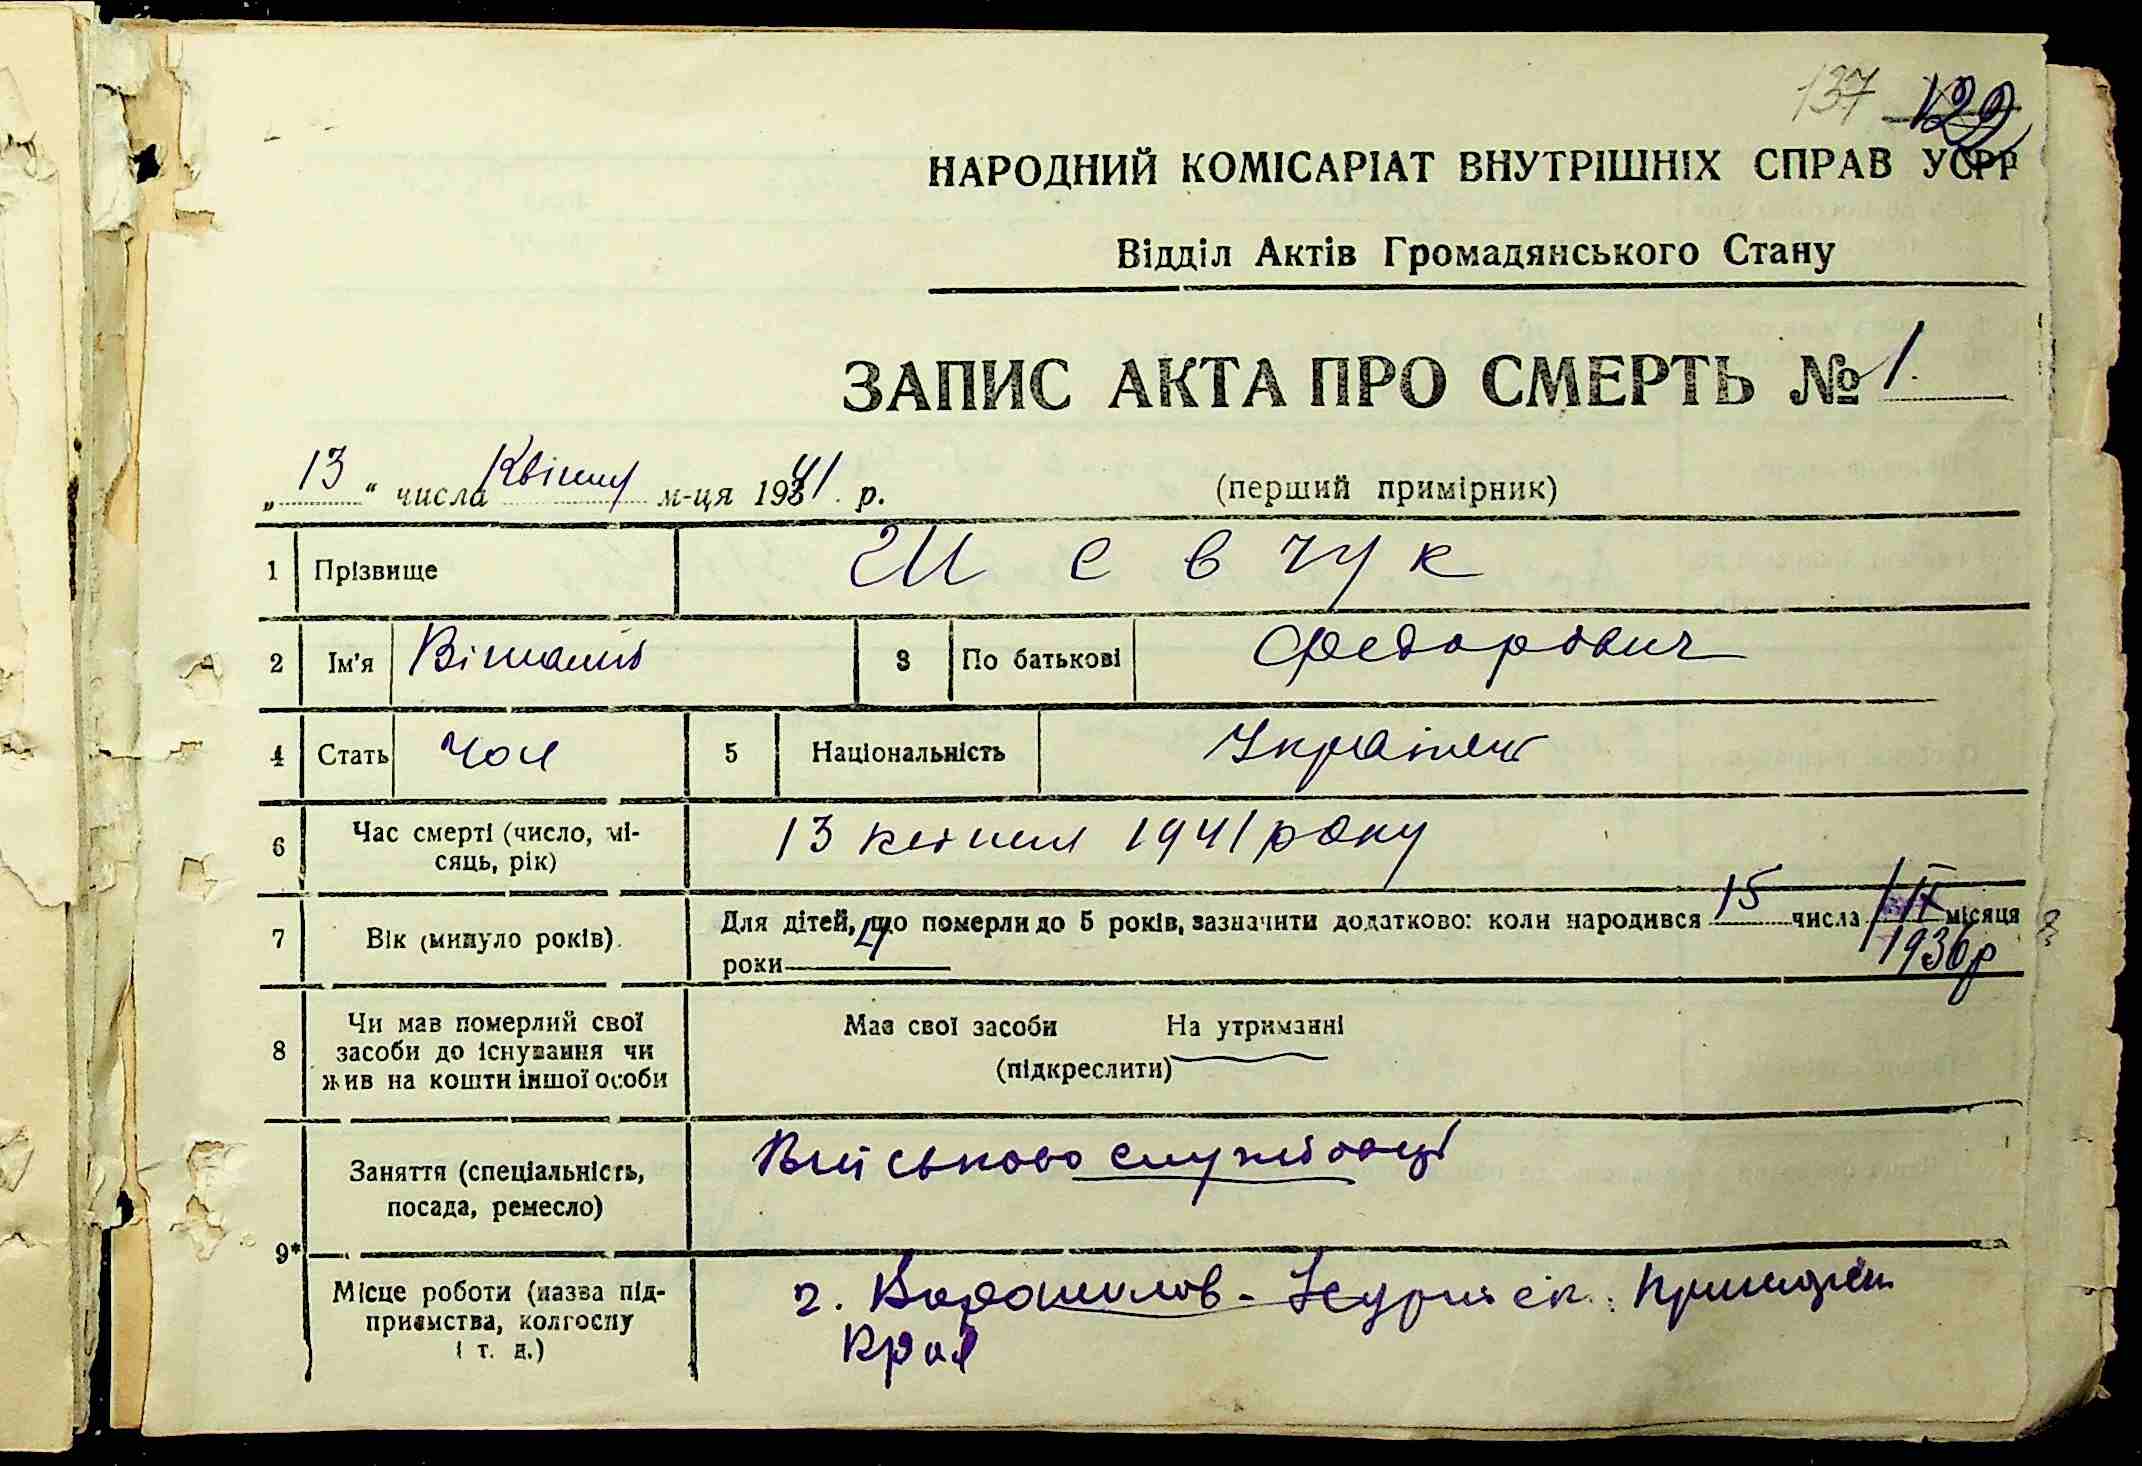 137 122
НАРОДНИЙ КОМІСАРІАТ ВНУТРІШНІХ СПРАВ УСРР
Відділ Актів Громадянського Стану
ЗАПИС АКТА ПРО СМЕРТЬ № 1.
„13“ числа Квітня м-ця 1941 р. (перший примірник)
1 Прізвище Шевчук
2 Ім'я Віталій 3 По батькові Федорович
4 Стать чол 5 Національність Українец
6 Час смерті (число, мі-
сяць, рік) 13 квітня 1941 року
7 Вік (минуло років). Для дітей, що померли до 5 років, зазначити додатково: коли народився 15 числа IX місяця
роки 4 1936 р
8 Чи мав померлий свої
засоби до існування чи
жив на кошти іншої особи
Мав свої засоби На утриманні
(підкреслити)
9* Заняття (спеціальність,
посада, ремесло) Військово службовці
Місце роботи (назва під-
приємства, колгоспу
і т. д.)
г. Ворошилов-
Края